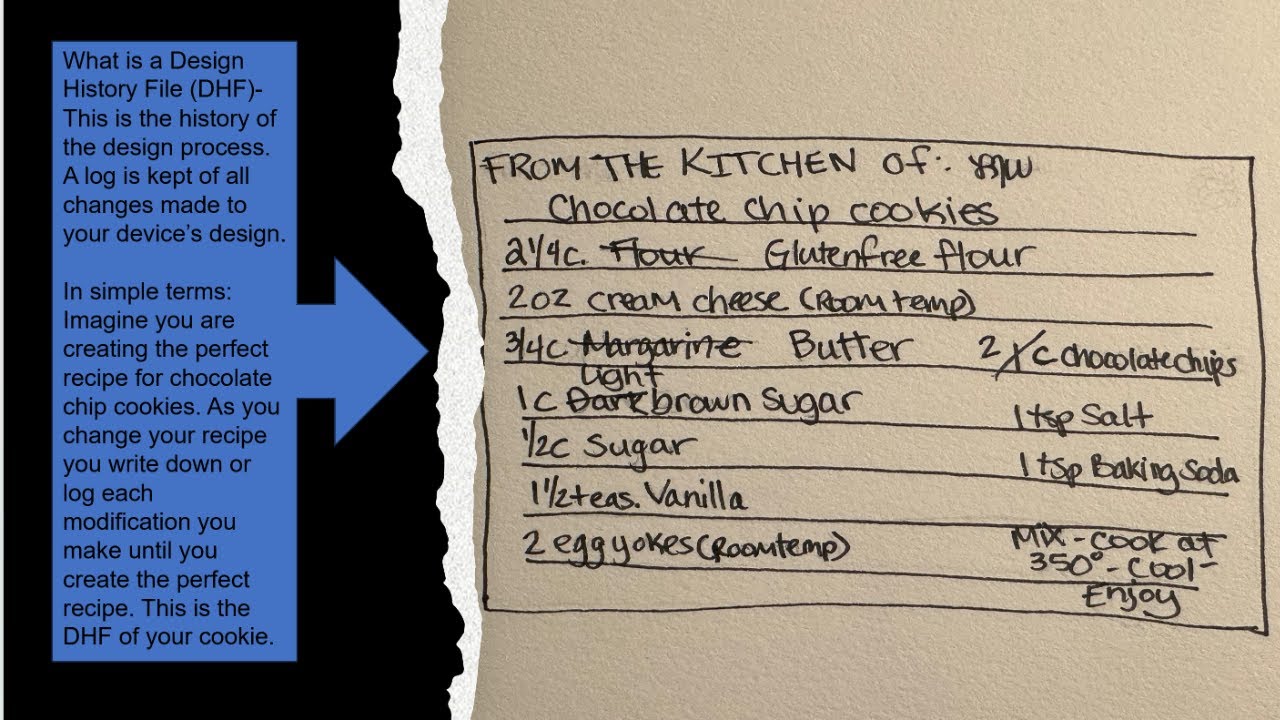 What is a Design
History File (DHF)-
This is the history of
the design process.
A log is kept of all
changes made to
your device’s design.
In simple terms:
Imagine you are
creating the perfect
recipe for chocolate
chip cookies. As you
change your recipe
you write down or
log each
modification you
make until you
create the perfect
recipe. This is the
DHF of your cookie.
FROM THE KITCHEN OF:
Chocolate chip cookies
2 1/4c. Flour Glutenfree flour
2oz cream cheese (Room temp)
3/4c Margarine Butter
2 1c chocolate chips
Light
1c Dark brown Sugar
1 tsp Salt
1/2c Sugar
1 tsp Baking Soda
1 1/2 teas. Vanilla
2 egg yokes (Room temp)
Mix - cook at
350° - Cool -
Enjoy